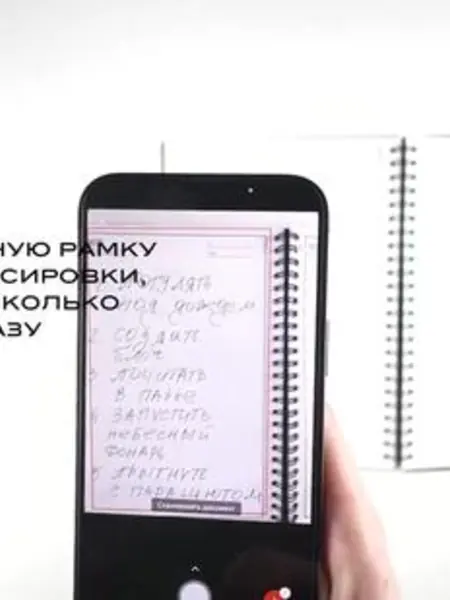 НУЮ РАМКУ
СИРОВКИ,
СКОЛЬКО
АЗУ
1 ПОГУЛЯТЬ
под дождём
2 СОЗДАТЬ
БЛОГ
3 ПОЧИТАТЬ
В ПАРКЕ
4 ЗАПУСТИТЬ
небесный
ФОНАРЬ
5 ПРЫГНУТЬ
С ПАРАШЮТОМ
Сканировать документ